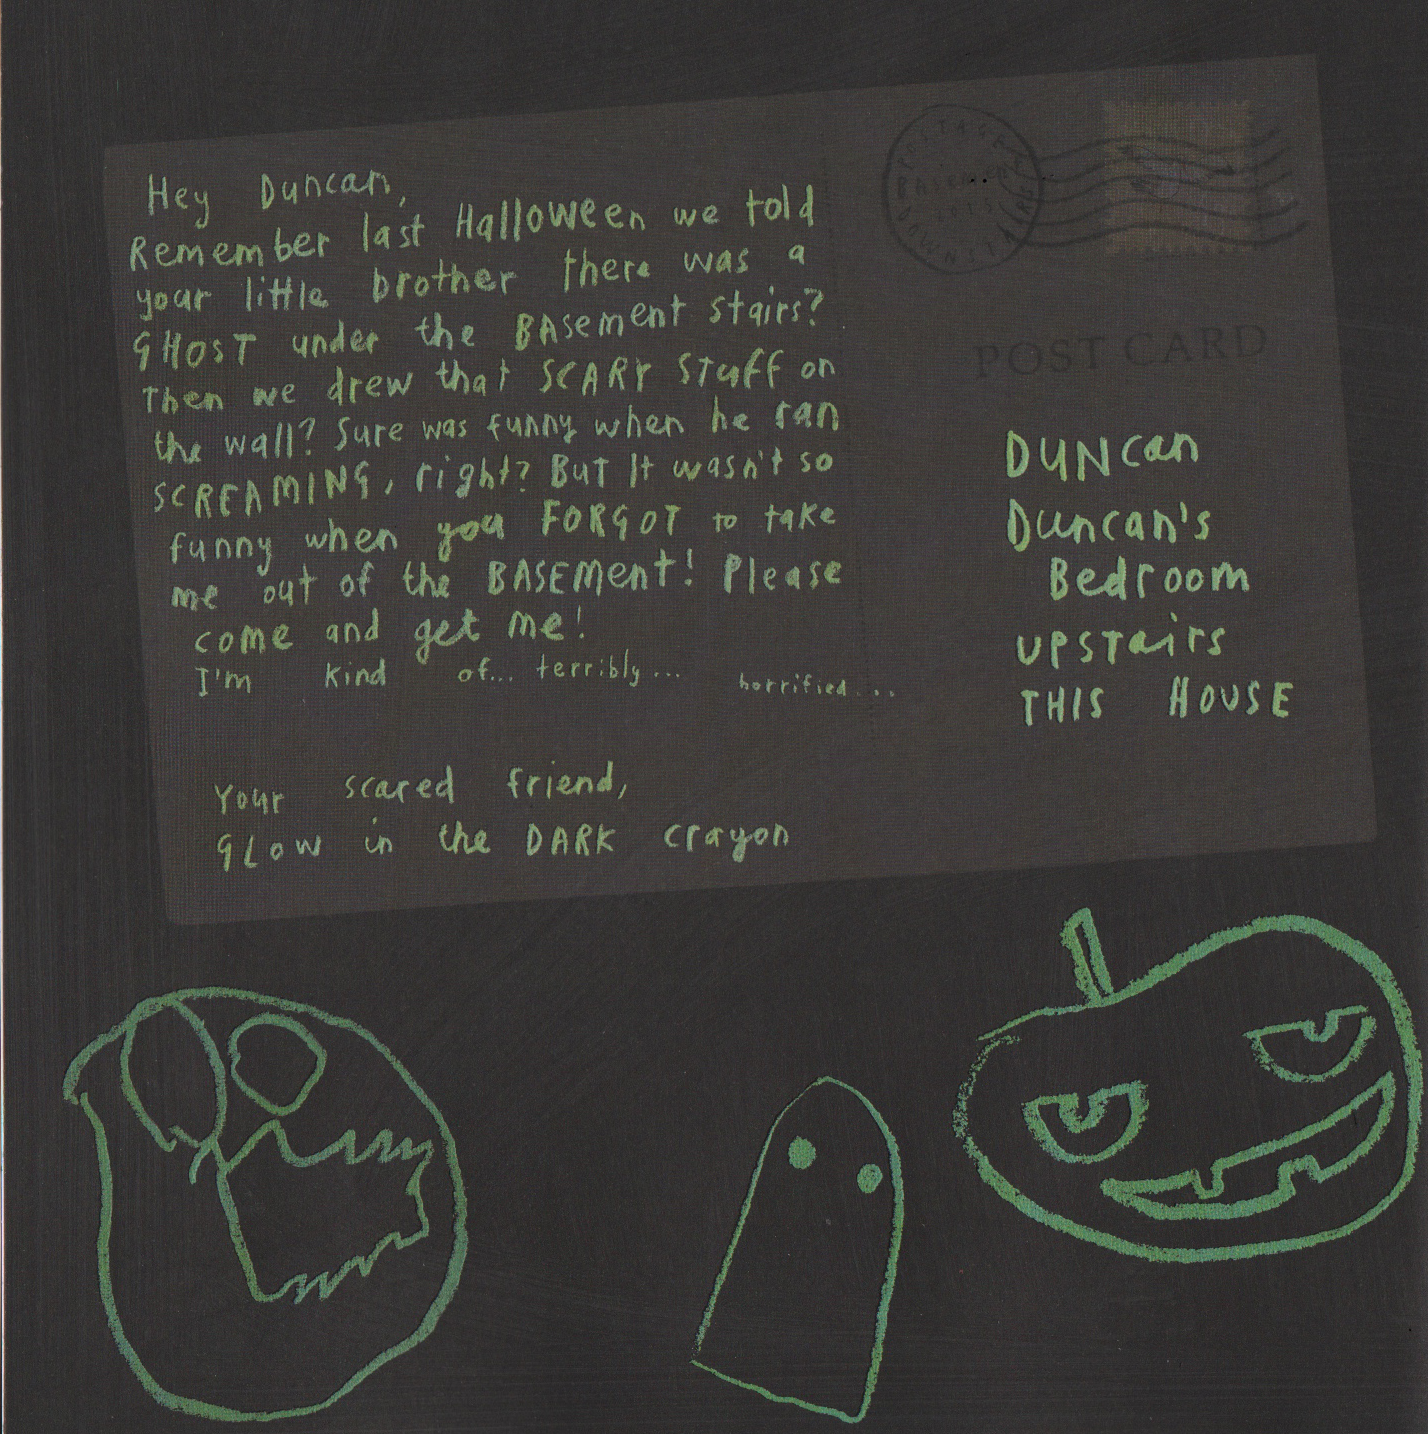 Hey Duncan,
Remember last Halloween we told
your little brother there was a
GHOST under the BAsement stairs?
Then we drew that SCARY Stuff on
the wall? Sure was funny when he ran
SCREAMING, right? BuT It wasn't so
funny when you FORGOT to take
me out of the BASEMent! Please
come and get me!
I'm kind of... terribly... horrified....
Your scared friend,
GLOW in the DARK crayon
POSTAGE
BASEMENT
2015
DOWNSTAIRS
POST CARD
DUNcan
Duncan's
Bedroom
upsTairs
THIS HOUSE